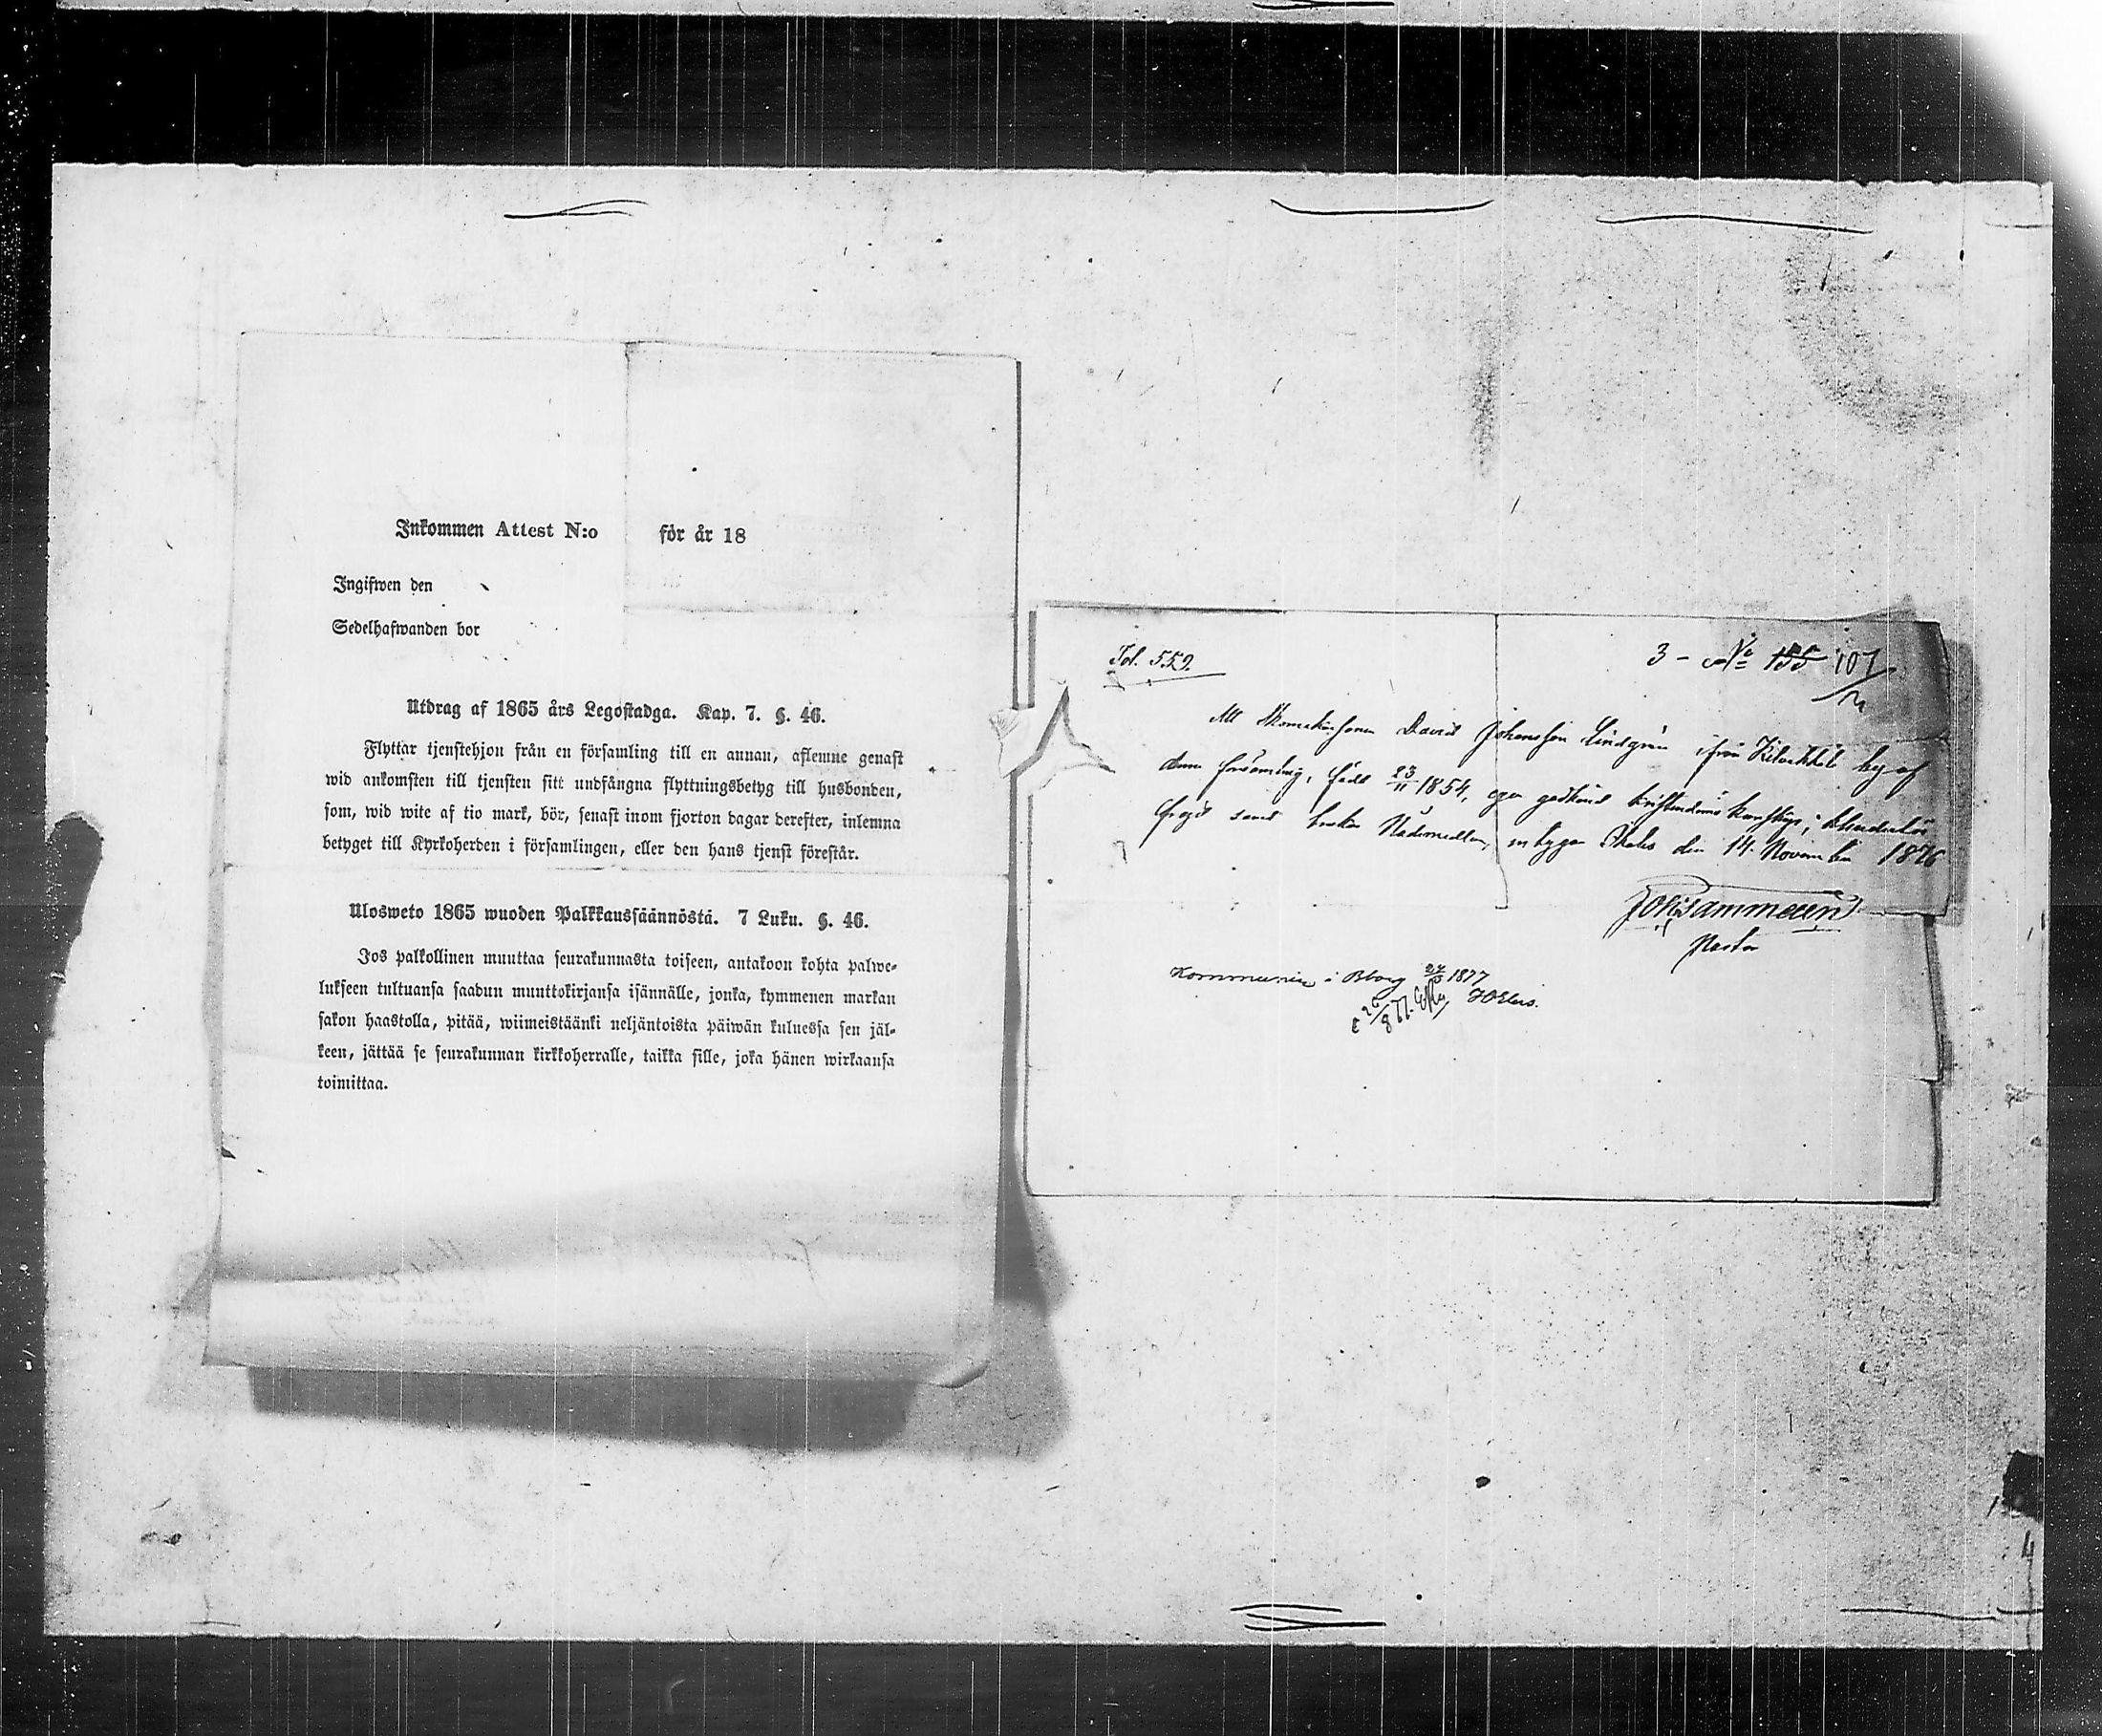 Inkommen Attest N:o för år 18
Ingifwen den
Sedelhafwanden bor
Utdrag af 1865 års Legostadga. Kap. 7. §. 46.
Flyttar tjenstehjon från en församling till en annan, aflemne genast
wid ankomsten till tjensten sitt undfångna flyttningsbetyg till husbonden,
som, wid wite af tio mark, bör, senast inom fjorton dagar derefter, inlemna
betyget till Kyrkoherden i församlingen, eller den hans tjenst förestår.
Ulosweto 1865 wuoden Palkkaussäännöstä. 7 Luku. §. 46.
Jos palkollinen muuttaa seurakunnasta toiseen, antakoon kohta palwe-
lukseen tultuansa saadun muuttokirjansa isännälle, jonka, kymmenen markan
sakon haastolla, pitää, wiimeistäänki neljäntoista päiwän kuluessa sen jäl-
keen, jättää se seurakunnan kirkkoherralle, taikka sille, joka hänen wirkaansa
toimittaa.
Fol. 559.
3 - No 155 107
Att David Johansson Lindgren ifrån by af
denna församling, född 23/11 1854, eger godkänd kristendoms kunskap,
frejd samt brukar Nådemedlen, intygar den 14 November 1876
Pastor
i Bborg 1877